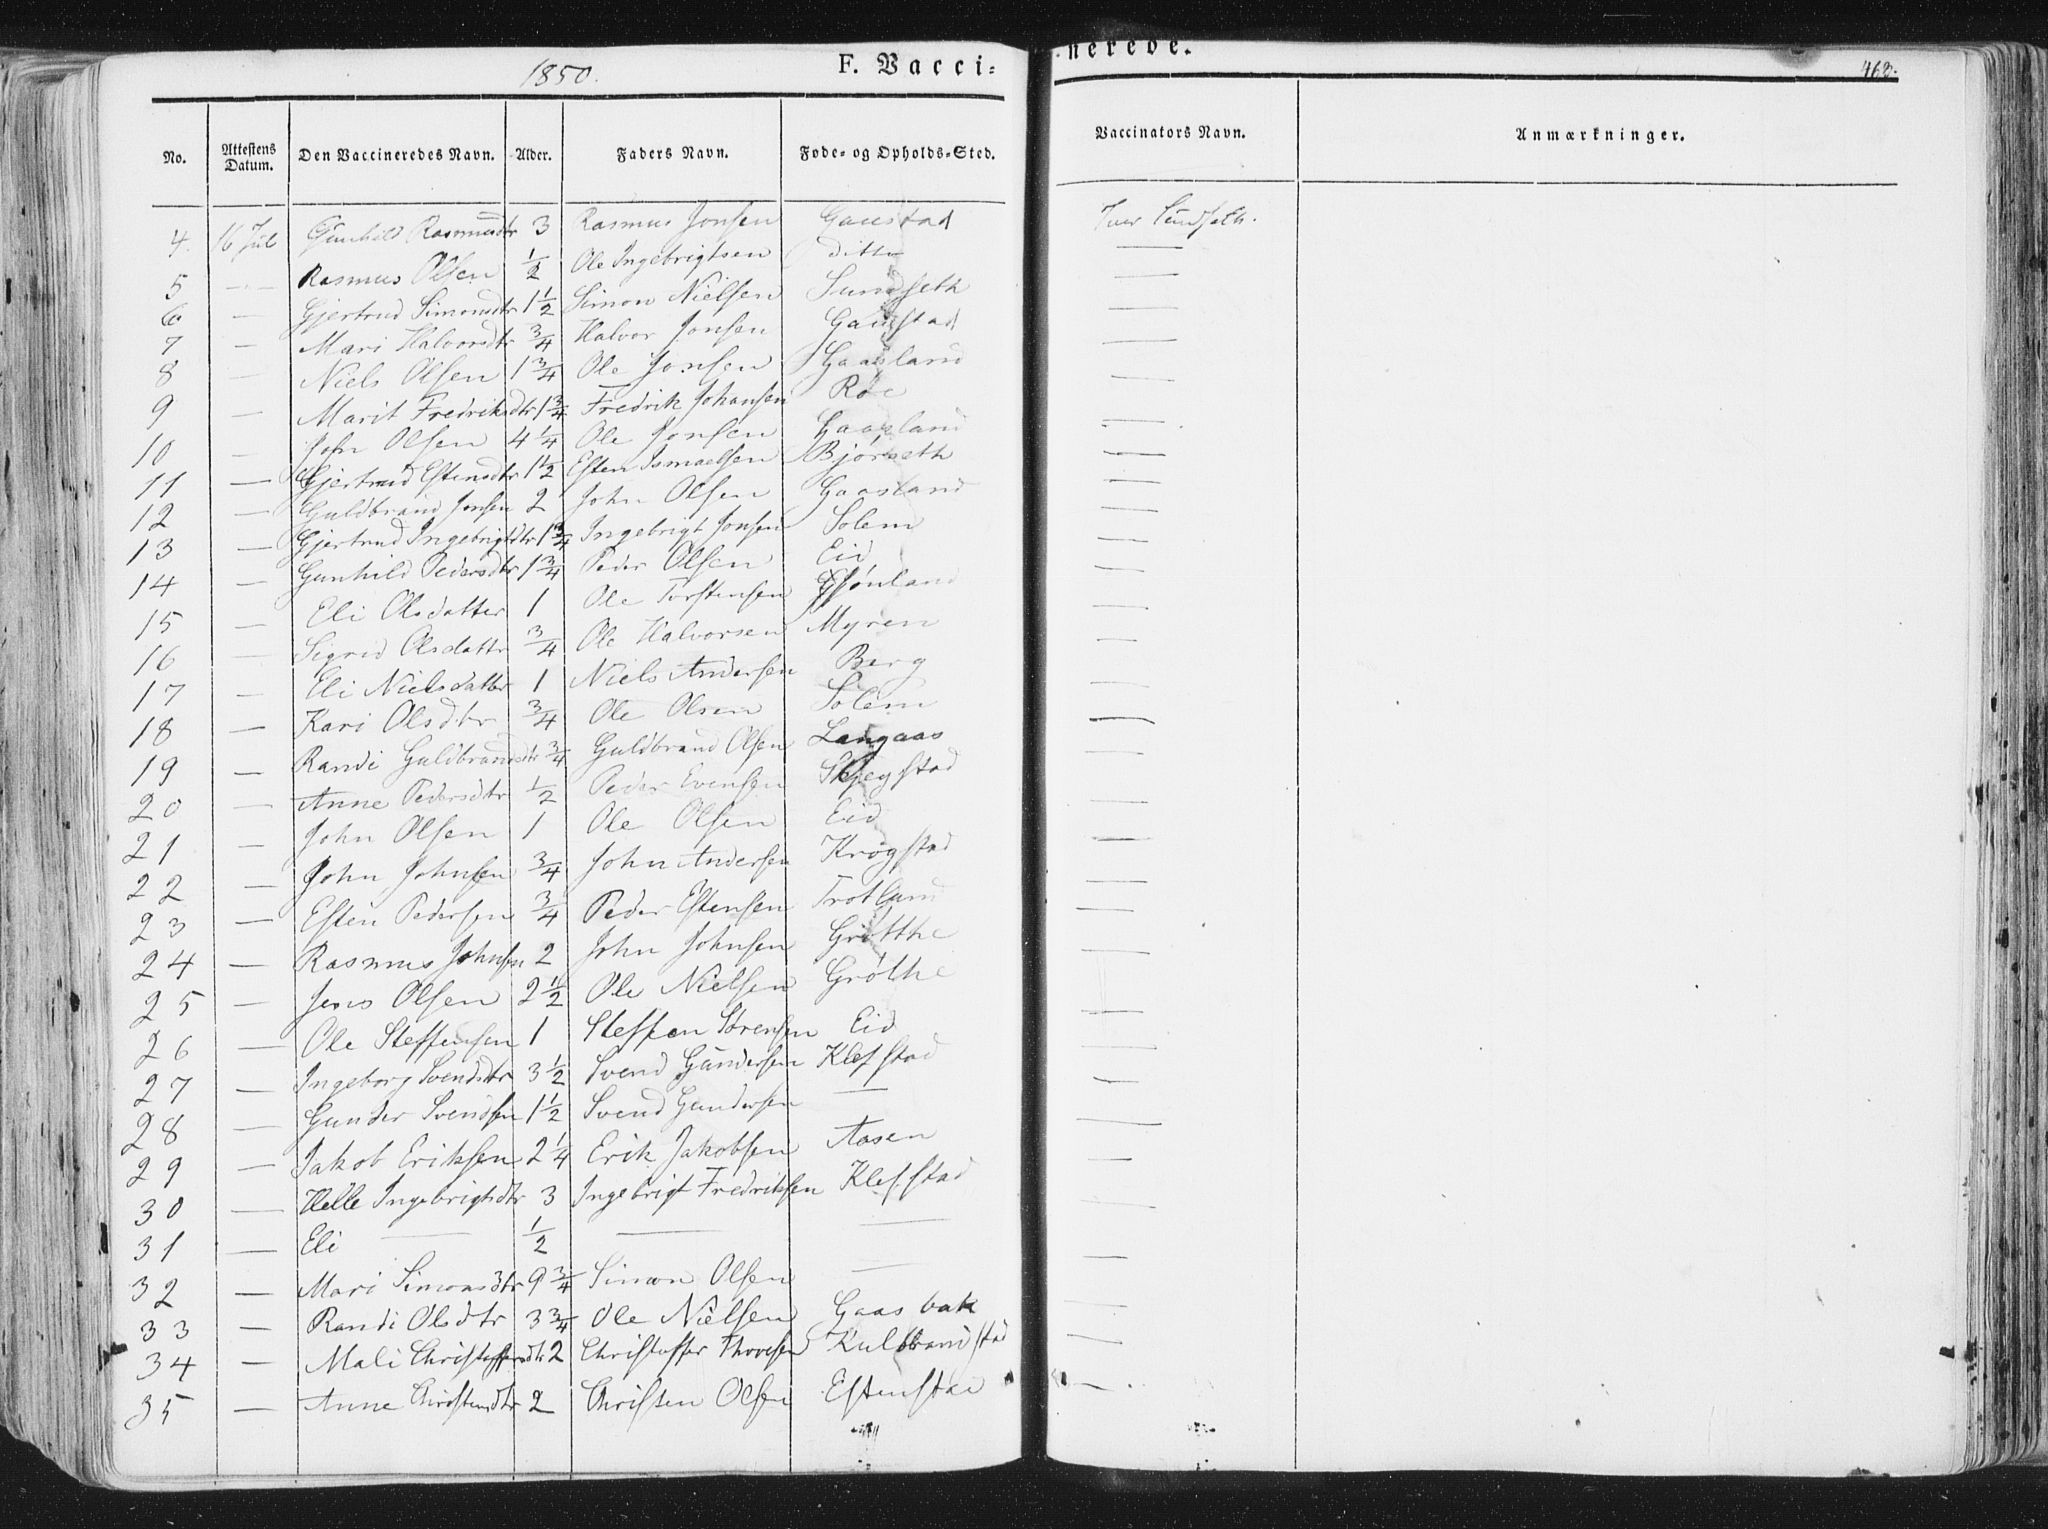 1850. F. Vacci- nerede. 468.
No. Attestens Datum. Den Vaccineredes Navn. Alder. Faders Navn. Føde- og Opholds-Sted. Vaccinators Navn. Anmærkninger.
4. 16 Jul Gunhild Rasmusdtr 3 Rasmus Jonsen Gaustad Iver Sundseth.
5 — Rasmus Olsen 1/2 Ole Ingebrigtsen ditto —
6 — Gjertrud Simonsdtr 1 1/2 Simon Nielsen Sundseth —
7 — Mari Halvorsdtr 3/4 Halvor Jonsen Gaustad —
8 — Niels Olsen 1 3/4 Ole Jonsen Gaasland —
9 — Marit Fredriksdtr 1 3/4 Fredrik Johansen Roe —
10 — John Olsen 4 1/4 Ole Jonsen Gaasland —
11 — Gjertrud Estensdtr 1 1/2 Esten Ismaelsen Bjørseth —
12 — Guldbrand Jonsen 2 John Olsen Gaasland —
13 — Gjertrud Ingebrigtdtr 1 3/4 Ingebrigt Jonsen Solem —
14 — Gunhild Pedersdtr 1 3/4 Peder Olsen Eid —
15 — Eli Olsdatter 1 Ole Torstensen —
16 — Sigrid Olsdattr 3/4 Ole Halvorsen Myren —
17 — Eli Nielsdatter 1 Niels Andersen Berg —
18 — Kari Olsdtr 3/4 Ole Olsen Solem —
19 — Randi Guldbrandsdtr 1 3/4 Guldbrand Olsen Langaas —
20 — Anne Pedersdtr 1/2 Peder Evensen Skjegstad —
21 — John Olsen 1 Ole Olsen Eid —
22 — John Johnsen 3/4 John Andersen Krogstad —
23 — Esten Pedersen 3/4 Peder Estensen Trotland —
24 — Rasmus Johnsen 2 John Johnsen Grøtthe —
25 — Jens Olsen 2 1/2 Ole Nielsen Grøthe —
26 — Ole Steffensen 1 Steffen Sørensen Eid —
27 — Ingeborg Svendsdtr 3 1/2 Svend Gundersen Klefstad —
28 — Gunder Svendsen 1 1/2 Svend Gundersen — —
29 — Jakob Eriksen 2 1/4 Erik Jakobsen Aasen —
30 — Helle Ingebrigtsdtr 3 Ingebrigt Fredriksen Klefstad —
31 — Eli — 1/2 — — —
32 — Mari Simonsdtr 9 3/4 Simon Olsen — —
33 — Randi Olsdtr 3 3/4 Ole Nielsen Gaasbak —
34 — Mali Christoffersdtr 2 Christoffer Thoresen Kulbrandstad —
35 — Anne Christensdtr 2 Christen Olsen Estenstad —